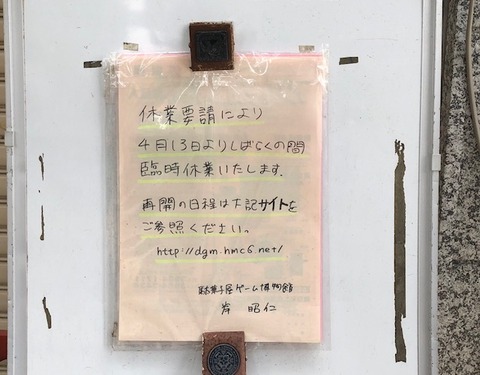 休業要請により
4月13日よりしばらくの間
臨時休業いたします.
再開の日程は下記サイトを
ご参照ください。
http://dgm.hmc6.net/
駄菓子屋ゲーム博物館
岸 昭仁